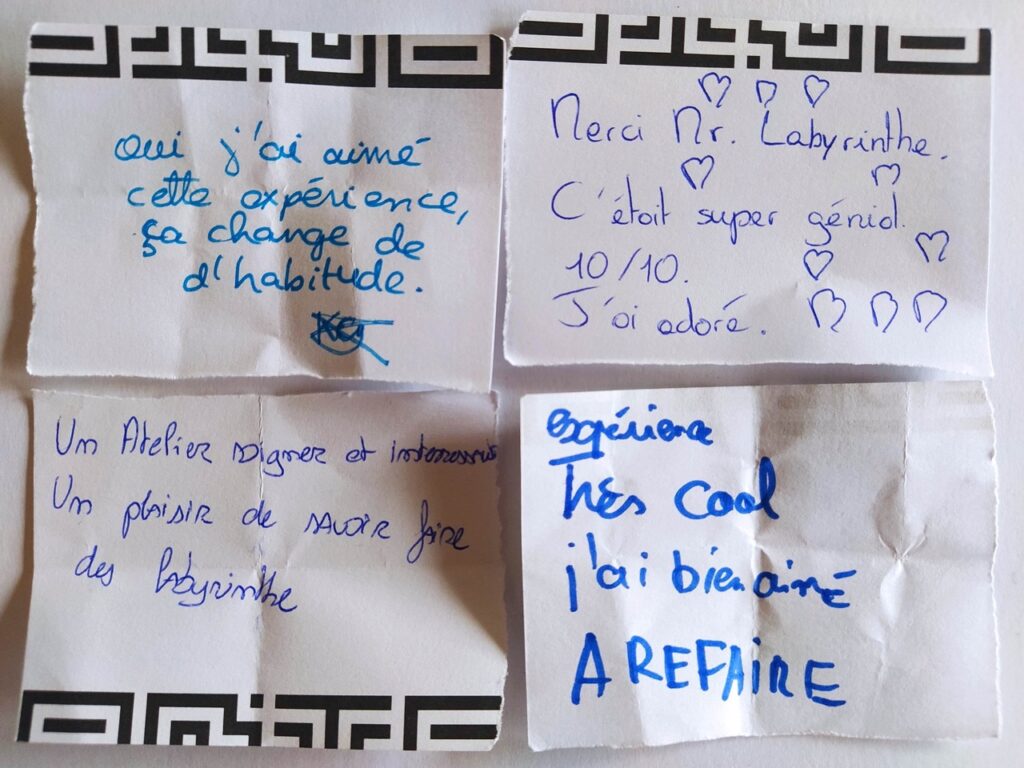 oui j'ai aimé
cette expérience,
ça change de
d'habitude.
Merci Mr. Labyrinthe.
C'était super génial.
10/10.
J'ai adoré.
Un Atelier soigner et
Un plaisir de savoir faire
des labyrinthe
expérience
très cool
j'ai bien aimé
A REFAIRE